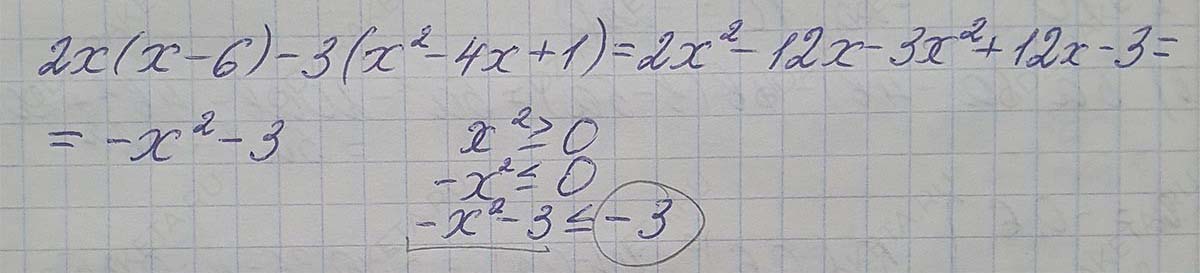 2x(x-6)-3(x²-4x+1)=2x²-12x-3x²+12x-3=
=-x²-3
x²≥0
-x²≤0
-x²-3≤-3